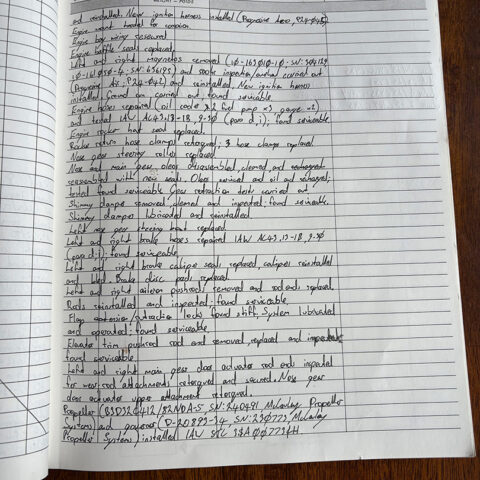 and reinstalled. New ignition harness installed (Progressive Aero, P24-042)
Engine mount treated for corrosion
Engine bay wiring resecured
Engine baffle seals replaced
Left and right magnetos removed (10-163010-10; SN:
and 500hr inspection/overhaul carried out
(Progressive Air; P24-042) and reinstalled. New ignition harness
installed. Ground run carried out, found serviceable
Engine hoses repaired (oil cooler x2, fuel pump x3, gauge x2)
and tested IAW AC43.13-1B, 9-30 (para d,i); found serviceable
Engine rocker hat seal replaced.
Rocker return hose clamps retorqued; 3 hose clamps replaced
Nose gear steering roller replaced
Nose and main gear oleos disassembled, cleaned, and
reassembled with new seals. Oleos serviced and oil and recharged;
tested found serviceable. Gear retraction tests carried out
Shimmy damper removed, cleaned and inspected; found serviceable.
Shimmy damper lubricated and reinstalled.
Left nose gear steering boot replaced
Left and right brake hoses repaired IAW AC43.13-1B, 9-30
(para d,i); found serviceable
Left and right brake caliper seals replaced, calipers reinstalled
and bled. Brake disc pads replaced
Left and right aileron pushrods removed and rod ends replaced.
Rods reinstalled and inspected; found serviceable.
Flap extension/retraction locks found stiff, System lubricated
and operated; found serviceable.
Elevator trim pushrod rod end removed, replaced and inspected
found serviceable.
Left and right main gear door actuator rod ends inspected
for wear; rod attachments retorqued and secured. Nose gear
door actuator upper attachment retorqued.
Propeller (B3D32C412/82NDA-5, SN: 240491, McCauley Propeller
Systems) and governor (D-20893-34, SN: 230773, McCauley
Propeller Systems) installed IAW STC SA00773CH